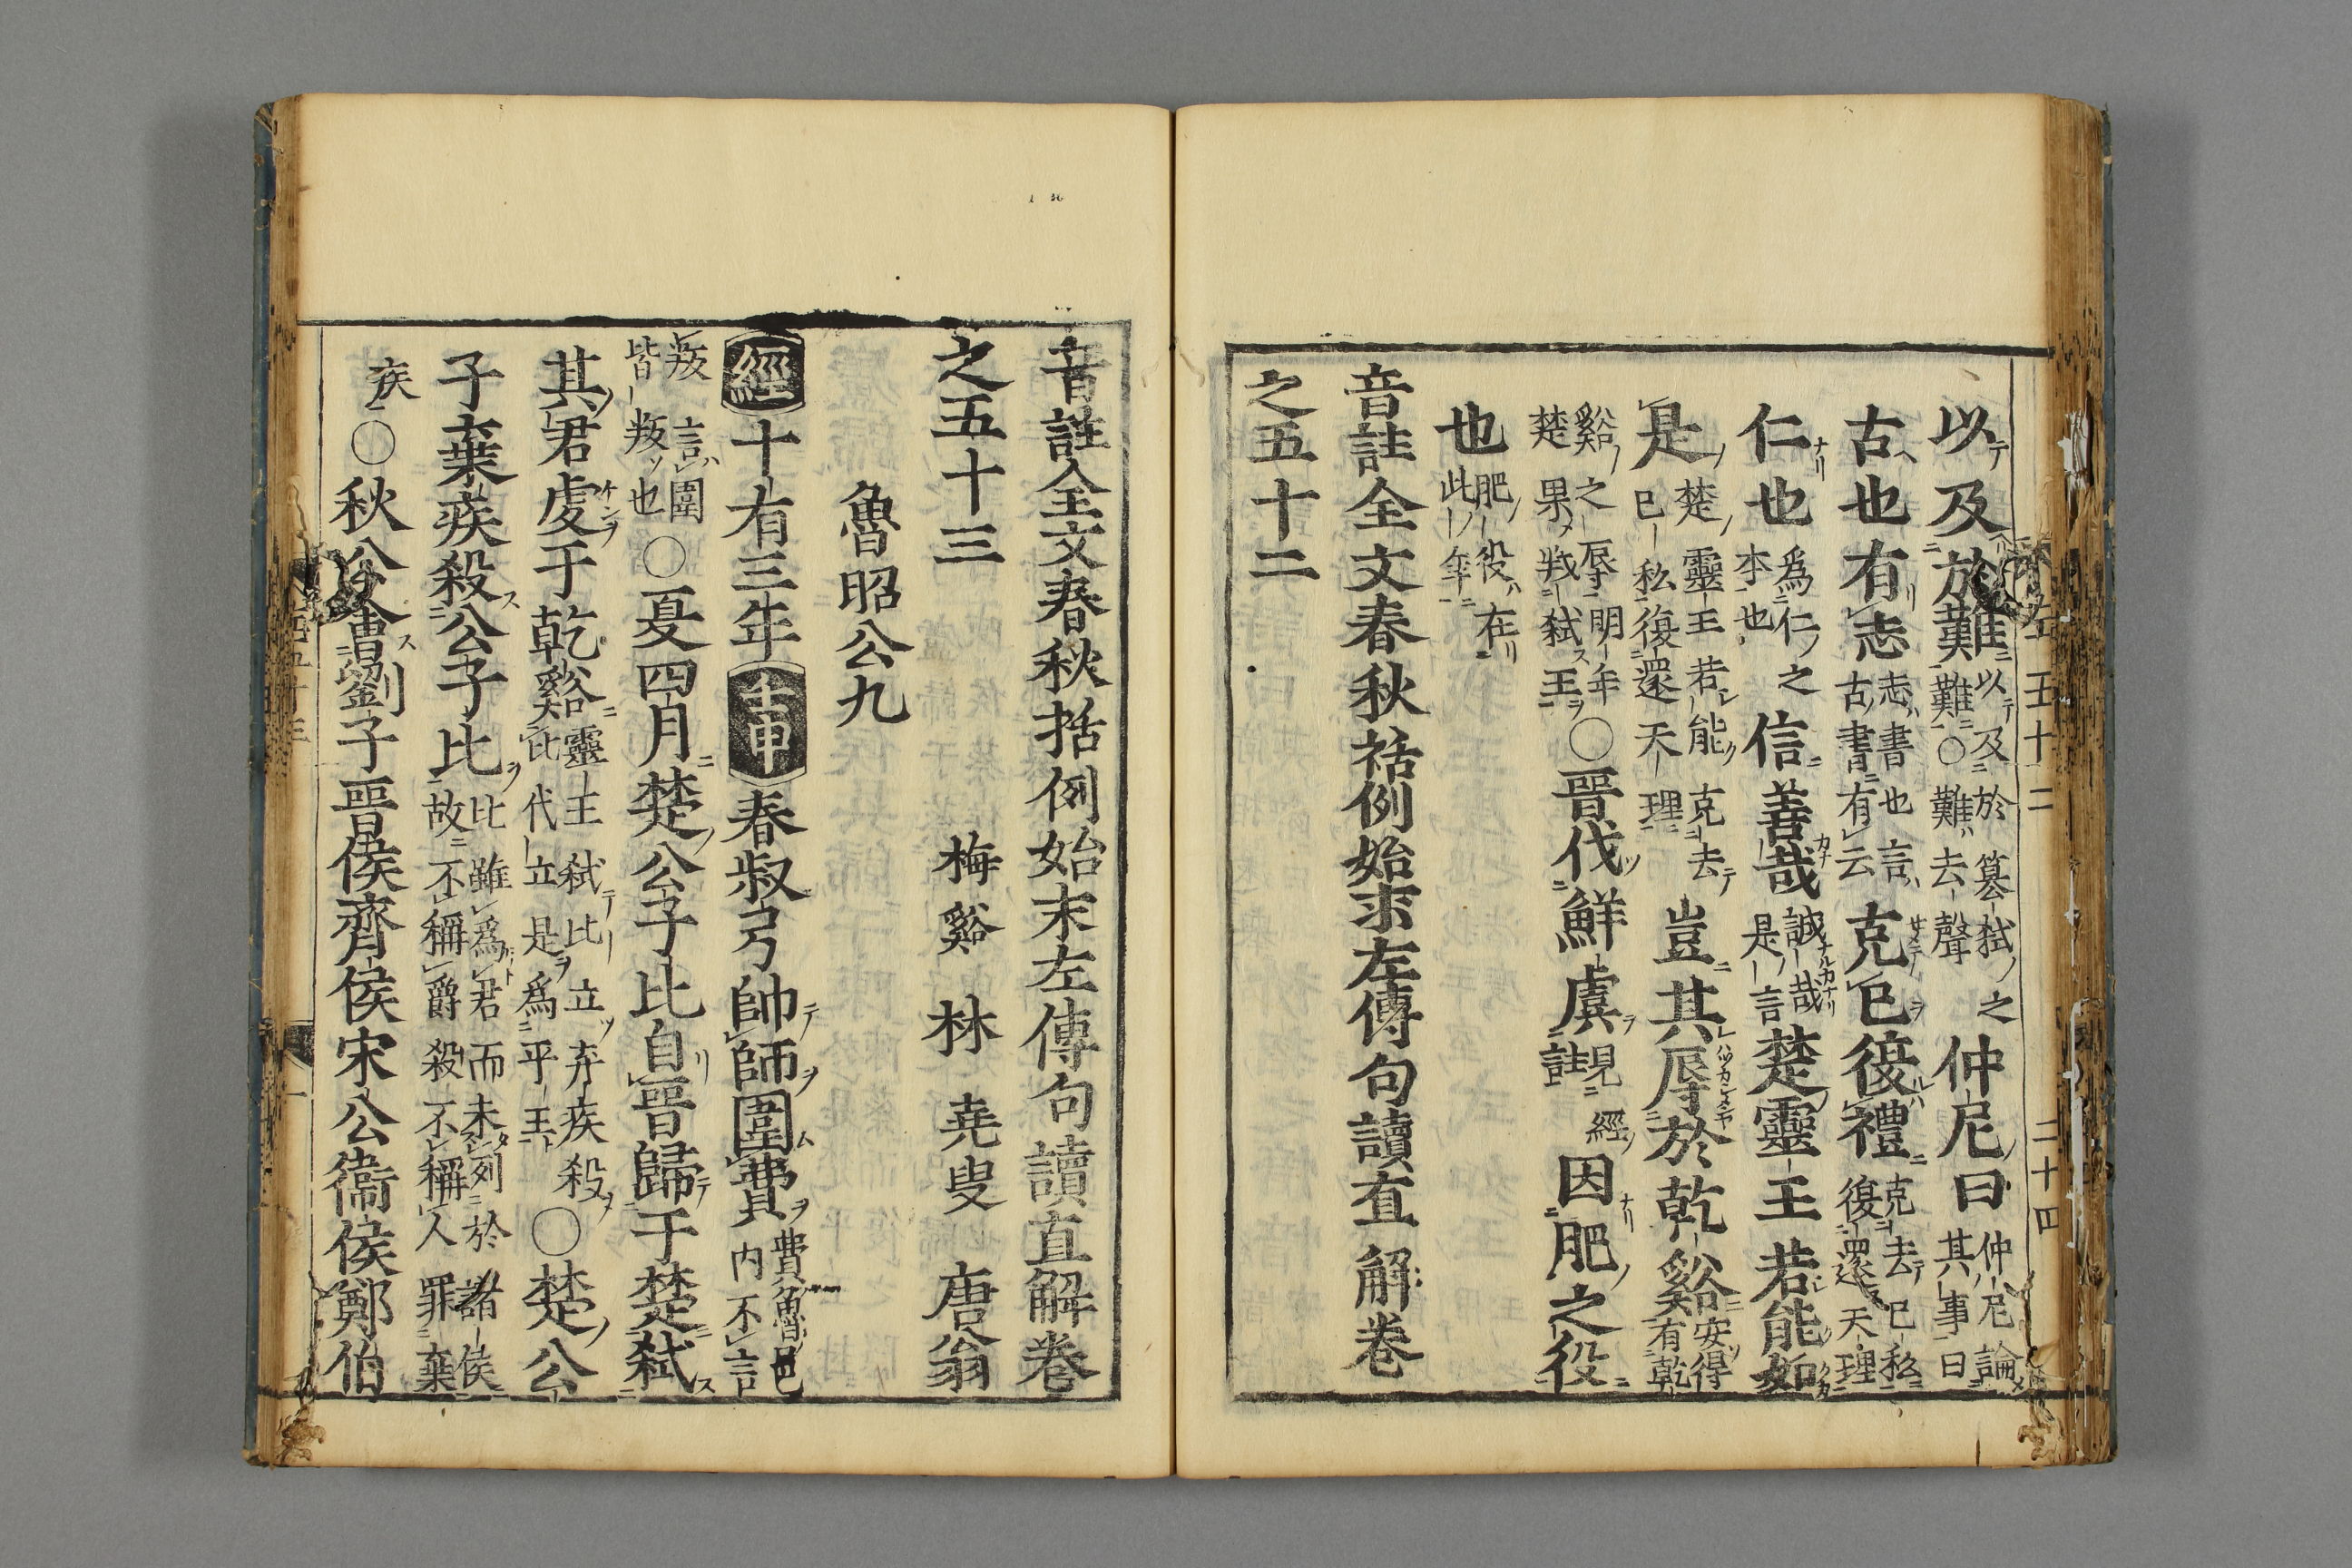 以及於難以及於簒弑之難○難去聲仲尼曰仲尼論其事曰
古也有志志書也言古書有云克已復禮克去已私復還天理
仁也爲仁之本也信善哉誠哉是言楚靈王若能如
是楚靈王若能克去已私復還天理豈其辱於乾谿安得有乾
谿之辱明年楚果戕弑王○晉伐鮮虞見經註因肥之役
也肥役在此年
音註全文春秋括例始末左傳句讀直解卷
之五十二
左五十二 二十四
音註全文春秋括例始末左傳句讀直解卷
之五十三 梅谿 林 堯叟 唐翁
魯昭公九
經十有三年壬申春叔弓帥師圍費費魯邑内不言
叛言圍皆叛也○夏四月楚公子比自晉歸于楚弑
其君虔于乾谿靈王弑比立弃疾殺比代立是爲平王○楚公
子棄疾殺公子比比雖爲君而未列於諸侯故不稱爵殺不稱人罪棄
疾○秋公會劉子晉侯齊侯宋公衞侯鄭伯